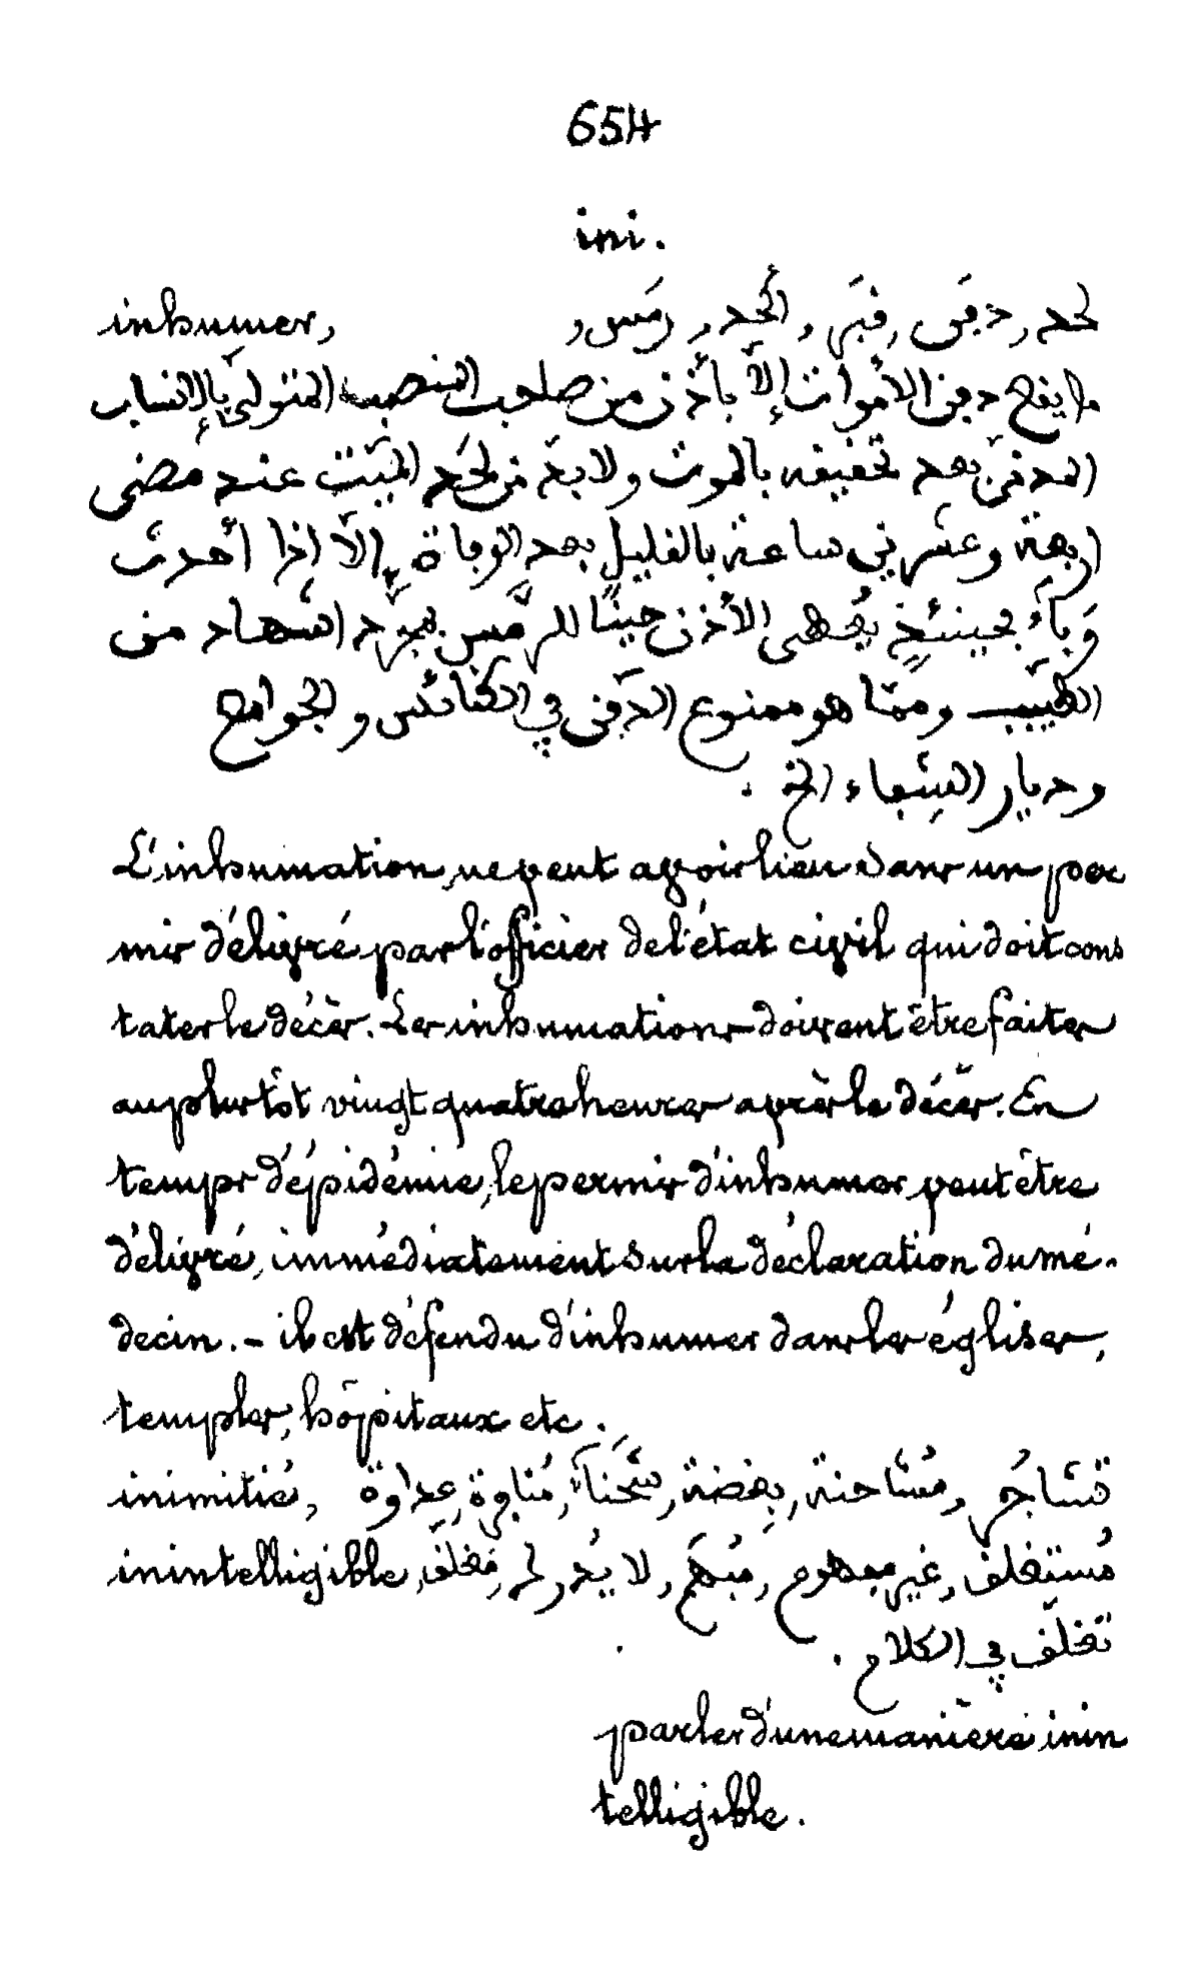 654
ini.
inhumer, لحد, دفن, قبَر, ألحد, رمَس,
ما يقع دفن الأموات إلاّ بأذن من صاحب المنصب المتولّي بالإنساب
المدفن بعد تحقيقه بالموت ولا بدّ من لحَد الميّت عند مُضى
اربعة وعشرين ساعة بالقليل بعد الوفاة إلاّ إذا أحدث
وَباءٌ فحينئذٍ يُعطى الأذن حينًا للرّمس بمجرّد اشهاد من
الطبيب وممّا هو ممنوع الدّفن في الكنائس والجوامع
وديار الشفاء الخ.
L'inhumation, ne peut avoir lieu sans un per
mis délivré par l'officier de l'état civil qui doit cons
tater le décès. Les inhumations doivent être faites
au plus tôt vingt quatre heures après le décès. En
temps d'épidémie, le permis d'inhumer peut être
délivré, immédiatement sur la déclaration du mé-
decin. – il est défendu d'inhumer dans les églises,
temples, hôpitaux etc.
inimitié, تشاجُر, مُشاحنة, بِغضة, شَحَنَاء, مُناوة, عِداوة
inintelligible, مُستغلق, غير مفهوم, مُبهَم, لا يُدرك, مُغلَق,
تغلّق في الكلام.
parler d'une manière inin
telligible.